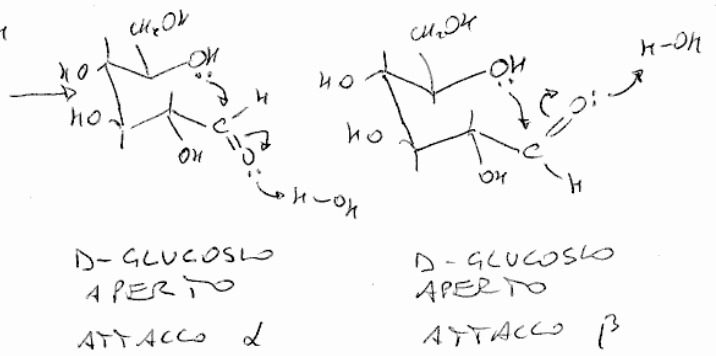 H
CH₂OH
HO
OH
HO
H
C
O
OH
H-OH
D-GLUCOSIO
APERTO
ATTACCO α
CH₂OH
H-OH
HO
OH
O:
HO
C
OH
H
D-GLUCOSIO
APERTO
ATTACCO β